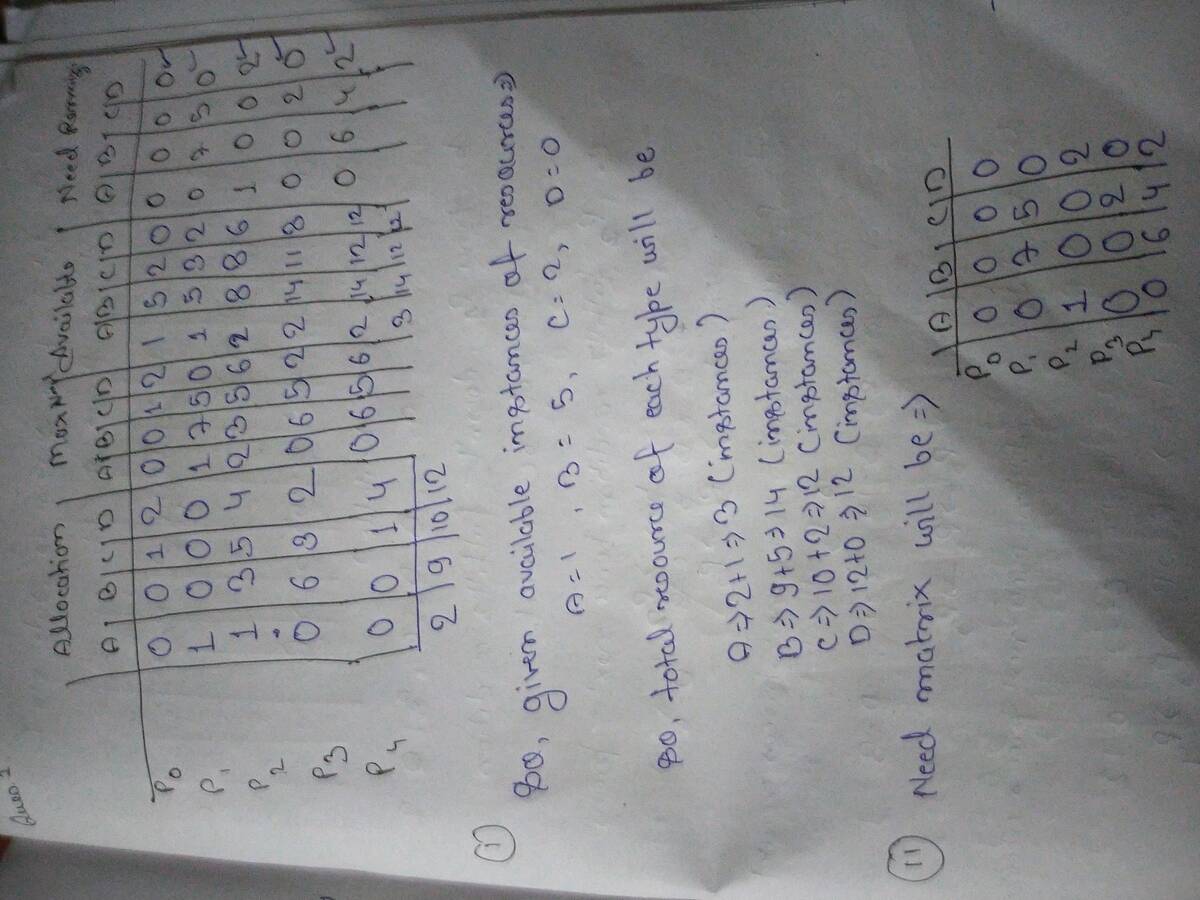 Ques 1
Allocation Max Need Available Need Remaining
A B C D A B C D A B C D A B C D
P0 0 0 1 2 0 0 1 2 1 5 2 0 0 0 0 0
P1 1 0 0 0 1 7 5 0 1 5 3 2 0 7 5 0
P2 1 3 5 4 2 3 5 6 2 8 8 6 1 0 0 2
P3 0 6 3 2 0 6 5 2 2 14 11 8 0 0 2 0
P4 0 0 1 4 0 6 5 6 2 14 12 12 0 6 4 2
3 14 12 12
2 9 10 12
(i)
So, given available instances of resources ⇒
A = 1, B = 5, C = 2, D = 0
So, total resource of each type will be
A ⇒ 2+1 ⇒ 3 (instances)
B ⇒ 9+5 ⇒ 14 (instances)
C ⇒ 10+2 ⇒ 12 (instances)
D ⇒ 12+0 ⇒ 12 (instances)
(ii) Need matrix will be ⇒
A B C D
P0 0 0 0 0
P1 0 7 5 0
P2 1 0 0 2
P3 0 0 2 0
P4 0 6 4 2